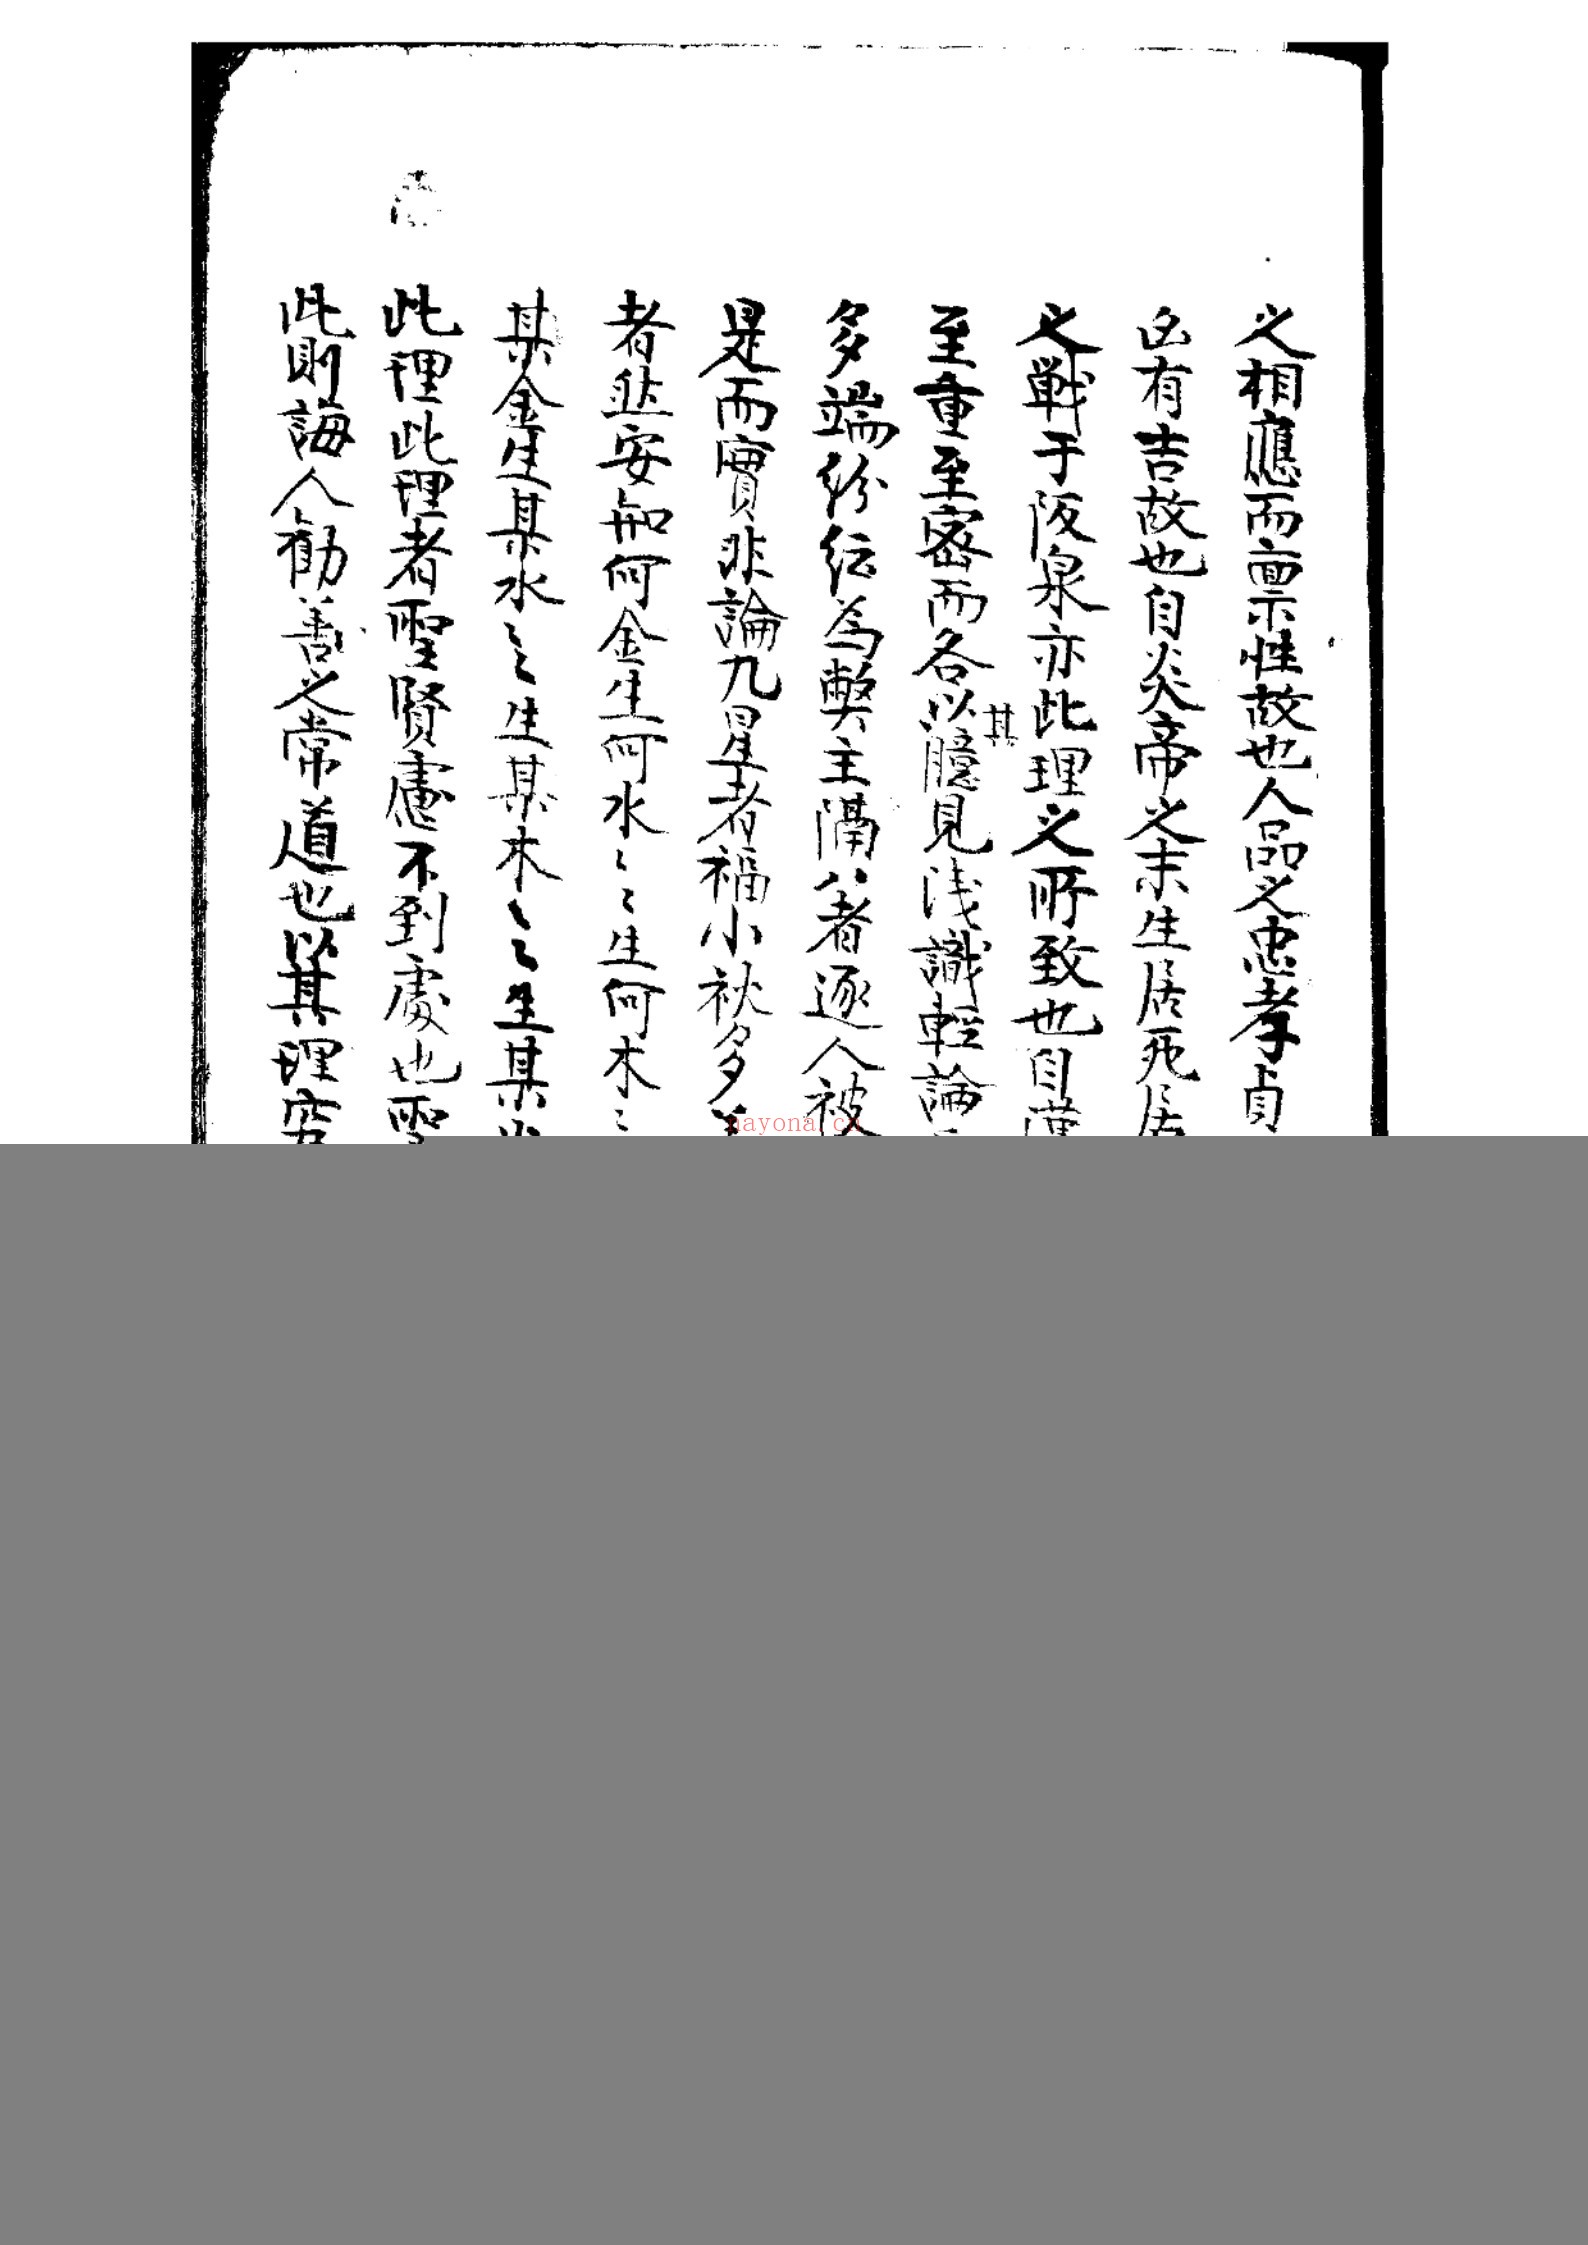 之相應而禀性故也人品之忠孝貞
凶有吉故也自炎帝之末生居死居
之戰于阪泉亦此理之所致也自漢
至重至密而各以其臆見浅識輕論
多端紛紜為弊主隔八者逐人被
是而實非論九星者福小秋多
者 安知何金生何水〻〻生何木〻
某金生某水〻〻生某木〻〻生某火
此理此理者聖賢慮不到處也聖
此則誨人勸善之常道也以其理
nayona.cn